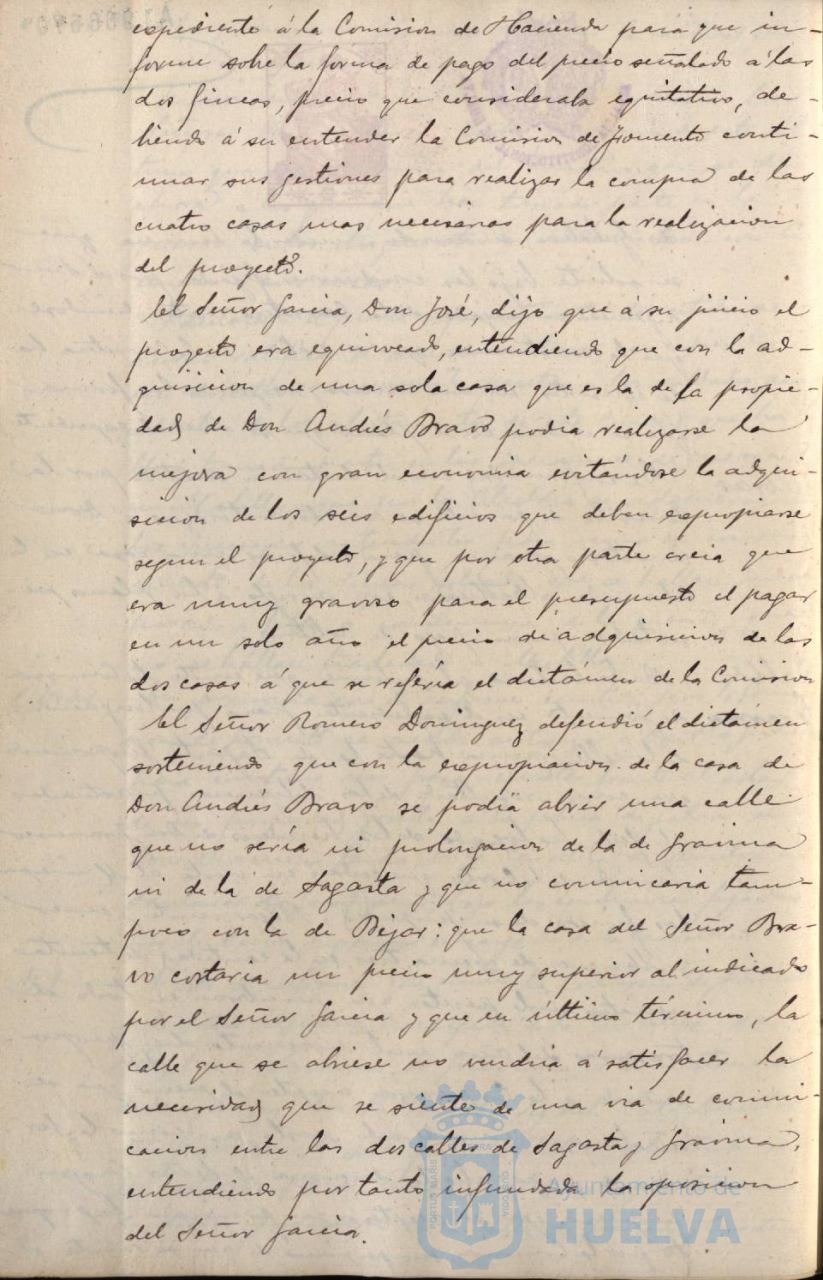 expediente á la Comision de Hacienda para que in-
forme sobre la forma de pago del precio señalado á las
dos fincas, precio que consideraba equitativo, de-
biendo á su entender la Comision de Fomento conti-
nuar sus gestiones para realizar la compra de las
cuatro casas mas necesarias para la realizacion
del proyecto.
El Señor Garcia, Don José, dijo que á su juicio el
proyecto era equivocado, entendiendo que con la ad-
quisicion de una sola casa que es la de la propie-
dad de Don Andrés Bravo podia realizarse la
mejora con gran economia evitándose la adqui-
sicion de los seis edificios que deben expropiarse
segun el proyecto, y que por otra parte creia que
era muy gravoso para el presupuesto el pagar
en un solo año el precio de adquisicion de las
dos casas á que se referia el dictámen de la Comision
El Señor Romero Dominguez defendió el dictámen
sosteniendo que con la expropiacion de la casa de
Don Andrés Bravo se podia abrir una calle
que no sería ni prolongacion de la de Gravina
ni de la de Sagasta y que no comunicaria tam-
poco con la de Béjar: que la casa del Señor Bra-
vo costaria un precio muy superior al indicado
por el Señor Garcia y que en último término, la
calle que se abriese no vendria á satisfacer la
necesidad que se siente de una via de comuni-
cacion entre las dos calles de Sagasta y Gravina,
entendiendo por tanto infundada la oposicion
del Señor Garcia.
Ayuntamiento de
HUELVA